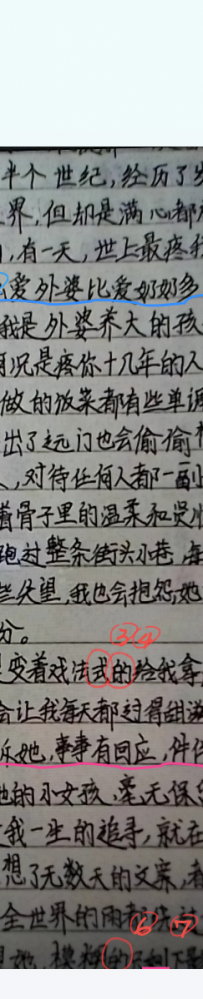 半个世纪,经历了岁
界,但却是满心都
,有一天,世上最疼我
爱外婆比爱奶奶多
我是外婆养大的孩
况是疼你十几年的人
做的饭菜都有些单调
出了远门也会偷偷
,对待任何人都一副
着骨子里的温柔和坚
跑过整条街头小巷,每
失望,我也会抱怨,她
分。
③④
变着戏法式的给我拿
会让我每天都过得甜滋
诉她,事事有回应,件件
她的小女孩,毫无保
我一生的追寻,就在
想了无数天的父亲,
全世界的雨
⑥ ⑦
她,模糊的